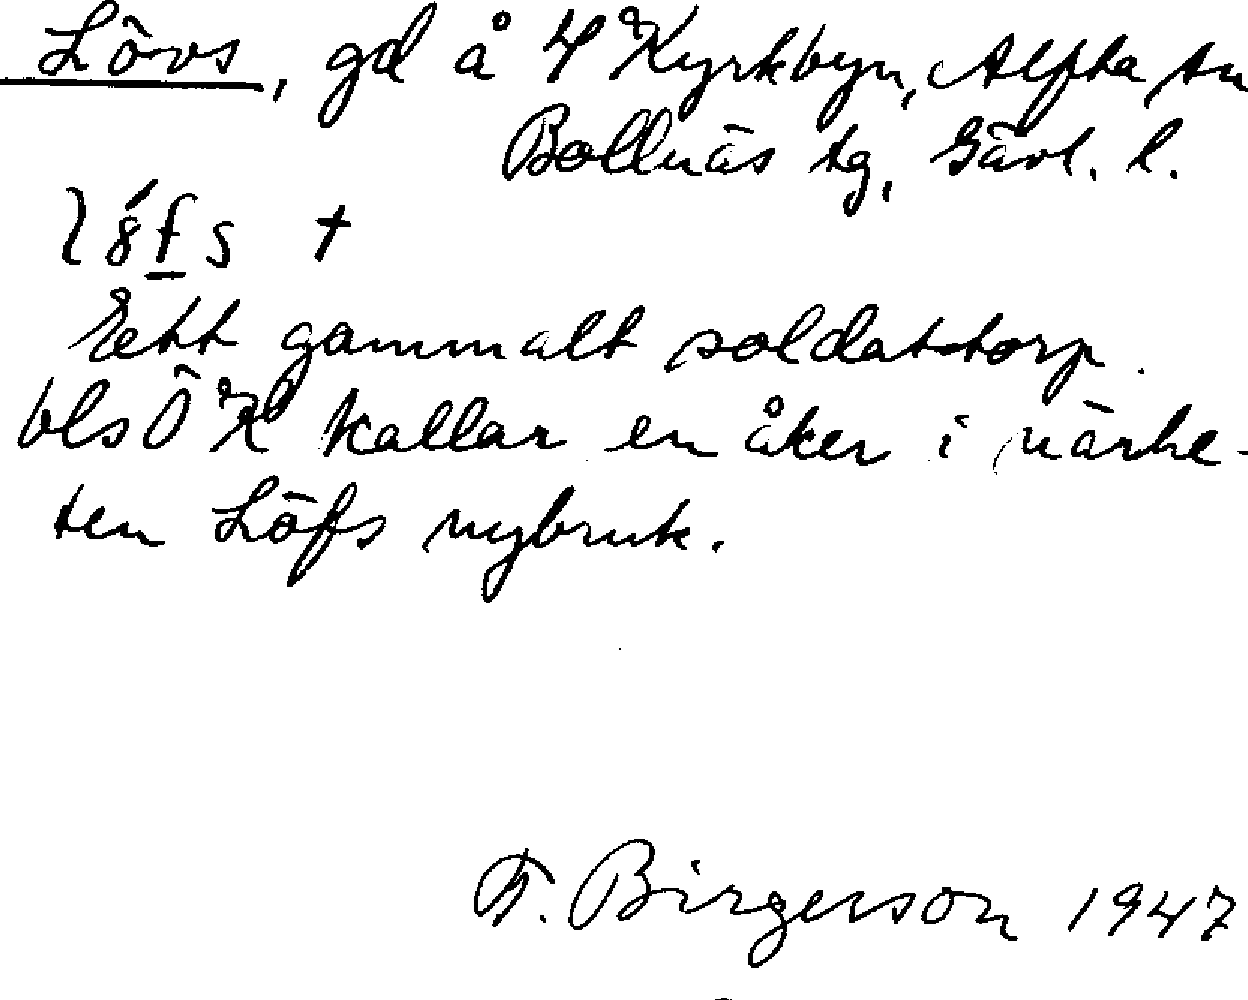 Lövs, gd å 4 Kyrkbyn, Alfta sn
Bollnäs tg, Gävl. l.
Ett gammalt soldattorp.
bls ÖK kallar en åker i närhe-
ten Löfs nybruk.
F. Birgerson 1947